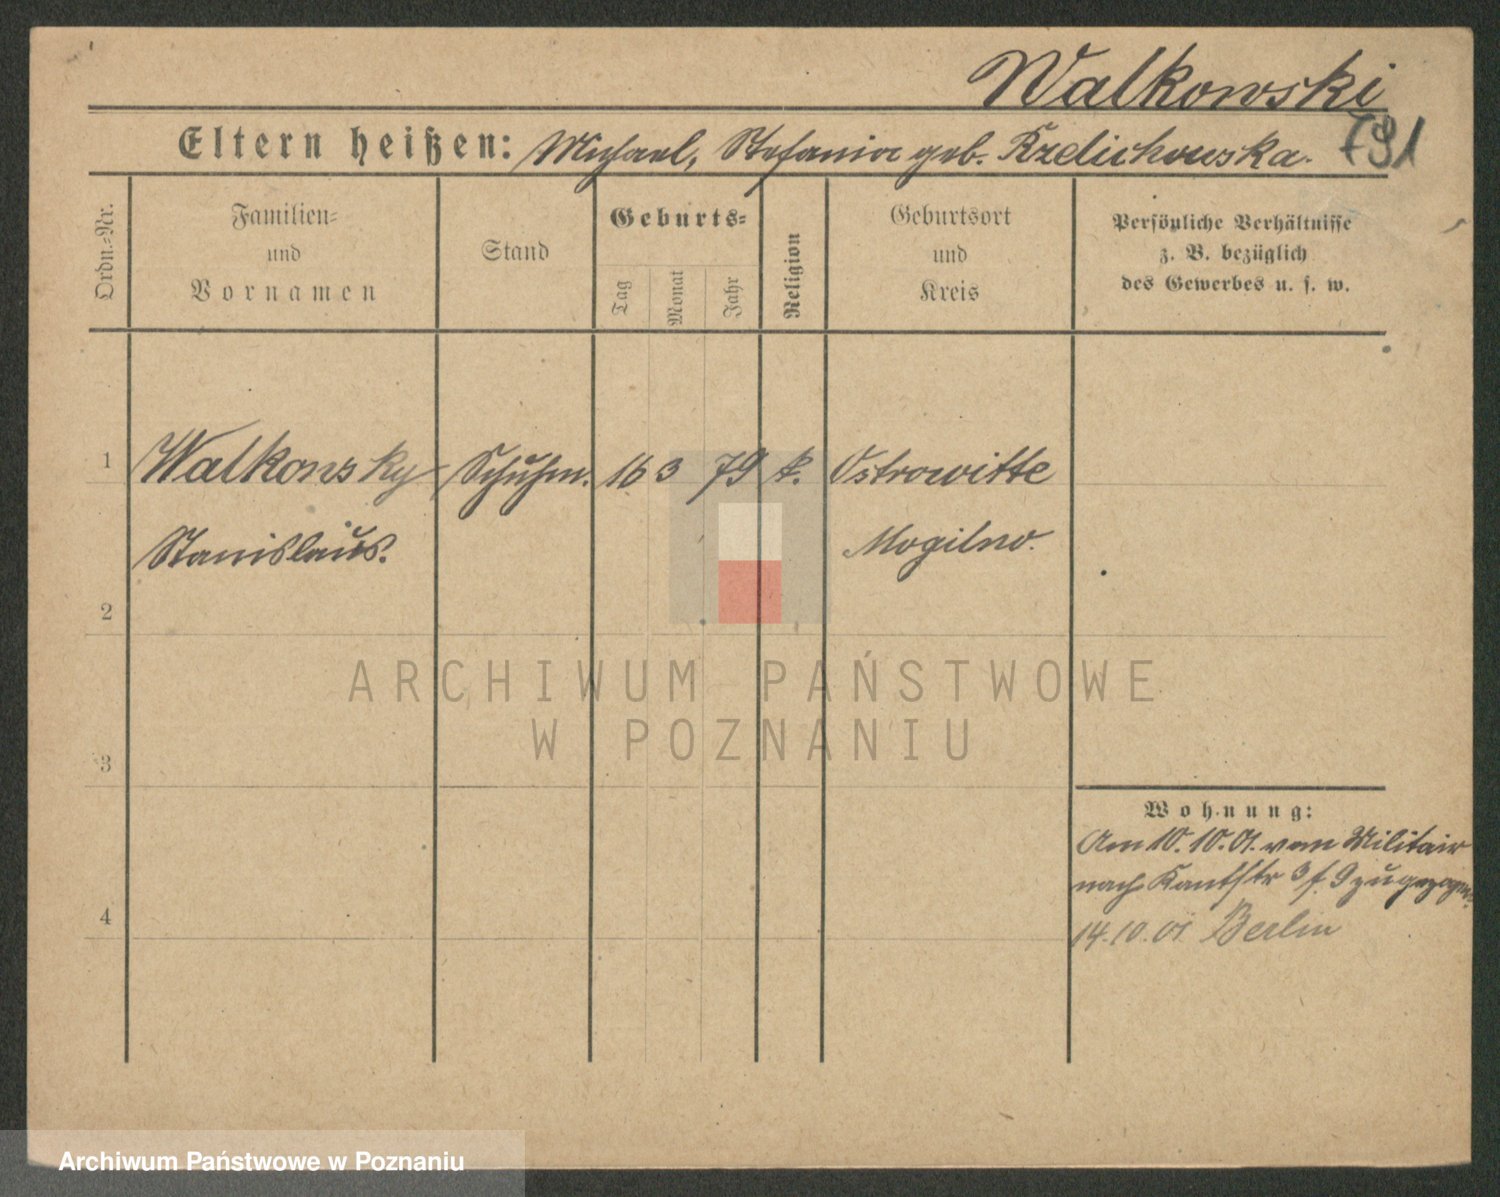 Walkowski
791
Eltern heißen: Michael, Stefania geb. Krzelichowska.
Ordn.-Nr.
Familien-
und
Vornamen
Stand
Geburts-
Tag
Monat
Jahr
Religion
Geburtsort
und
Kreis
Persönliche Verhältnisse
z. B. bezüglich
des Gewerbes u. s. w.
1 Walkowsky Schuhm. 16 3 79 k. Ostrowitte
Stanislaus. Mogilno.
2
ARCHIWUM PAŃSTWOWE
W POZNANIU
3
Wohnung:
Am 10.10.01. vom Militair
nach Kantstr 3 f. 9 zugezogen.
4
14.10.01 Berlin
Archiwum Państwowe w Poznaniu